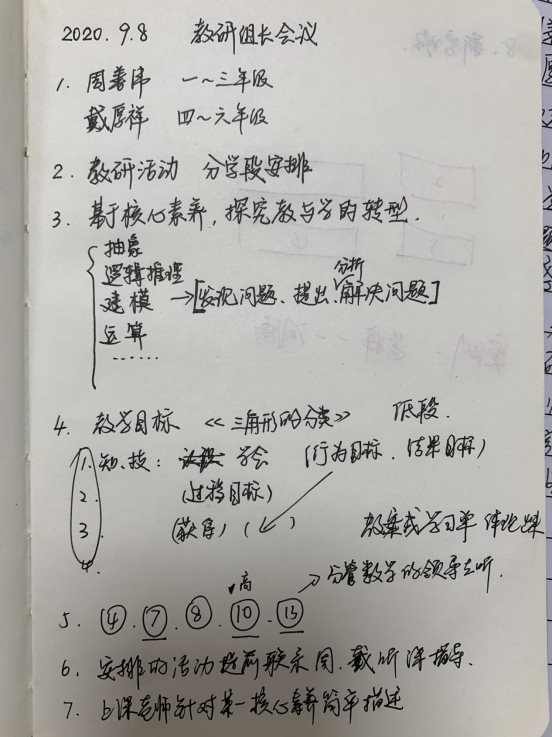 2020.9.8 教研组长会议
1. 周善伟 一~三年级
戴厚祥 四~六年级
2. 教研活动 分学段安排
3. 基于核心素养,探究教与学的转型.
抽象
逻辑推理
分析
建模 →[发现问题、提出、解决问题]
运算
……
4. 教学目标 《三角形的分类》 低段.
1. 知、技: 学会 (行为目标、结果目标)
2 (过程目标)
3 (获得) ( )
教案或学习单 体现
4.
高
→分管数学的领导去听.
5. ④.⑦.⑧.⑩.⑬
6. 安排的活动提前联系周、戴听课指导.
7. 上课老师针对某一核心素养简单描述